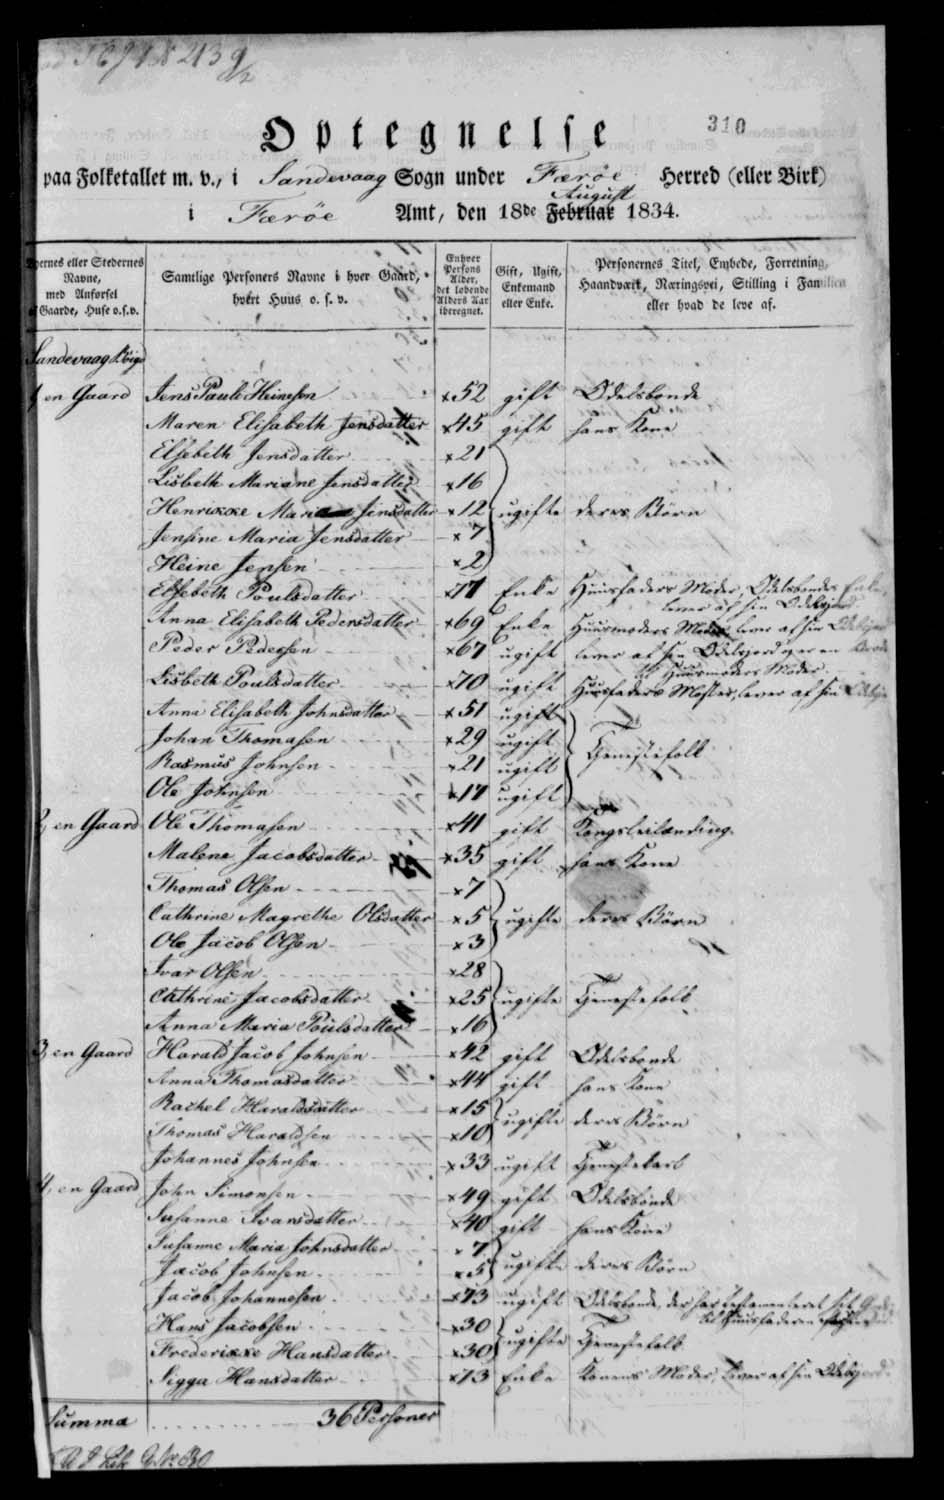 310
Optegnelse
paa Folketallet m. v., i Sandevaag Sogn under Færöe Herred (eller Birk)
August
i Færöe Amt, den 18de Februar 1834.
Byernes eller Stedernes Navne, med Anførsel af Gaarde, Huse o.s.v.
Samtlige Personers Navne i hver Gaard, hvert Huus o. s. v.
Enhver Persons Alder, det løbende Alders Aar iberegnet.
Gift, Ugift, Enkemand eller Enke.
Personernes Titel, Embede, Forretning, Haandværk, Næringsvei, Stilling i Familien eller hvad de leve af.
Sandevaag Böigd
1, en Gaard Jens Pauli Heinesen x52 gift Odelsbonde
Maren Elisabeth Jensdatter x45 gift hans Kone
Elsebeth Jensdatter x21
Lisbeth Mariane Jensdatter x16
Henrikke Maria Jensdatter x12 ugifte deres Börn
Jensine Maria Jensdatter x7
Heine Jensen x2
Elsebeth Poulsdatter x77 Enke Huusfaders Moder, Odelsbondes Enke,
lever af sin Odelsjord
Anna Elisabeth Pedersdatter x69 Enke Huusmoders Moder, lever af sin Odelsjord
Peder Pedersen x67 ugift lever af sin Odelsjord og er en Broder
til Huusmoders Moder.
Lisbeth Poulsdatter x70 ugift Huusfaders Moster, lever af sin Odelsjord
Anna Elisabeth Johnsdatter x51 ugift
Johan Thomasen x29 ugift Tjenestefolk
Rasmus Johnsen x21 ugift
Ole Johnsen x17 ugift
2, en Gaard Ole Thomasen x41 gift Kongsleilænding
Malene Jacobsdatter x35 gift hans Kone
Thomas Olsen x7
Cathrine Magrethe Olsdatter x5 ugifte deres Börn
Ole Jacob Olsen x3
Ivar Olsen x28
Cathrine Jacobsdatter x25 ugifte Tjenestefolk
Anna Maria Poulsdatter x16
3, en Gaard Harald Jacob Johnsen x42 gift Odelsbonde
Anna Thomasdatter x44 gift hans Kone
Rachel Haraldsdatter x15
Thomas Haraldsen x10 ugifte deres Börn
Johannes Johnsen x33 ugift Tjenestekarl
4, en Gaard John Simonsen x49 gift Odelsbonde
Susanne Ivarsdatter x40 gift hans Kone
Susanne Maria Johnsdatter x7
Jacob Johnsen x5 ugifte deres Börn
Jacob Johannesen x73 ugift Odelsbonde, der har testamenteret sit Gods
til Huusfaderen
Hans Jacobsen x30
Frederikke Hansdatter x30 ugifte Tjenestefolk
Sigga Hansdatter x73 Enke Konens Moder, lever af sin Odelsjord.
Summa 36 Personer